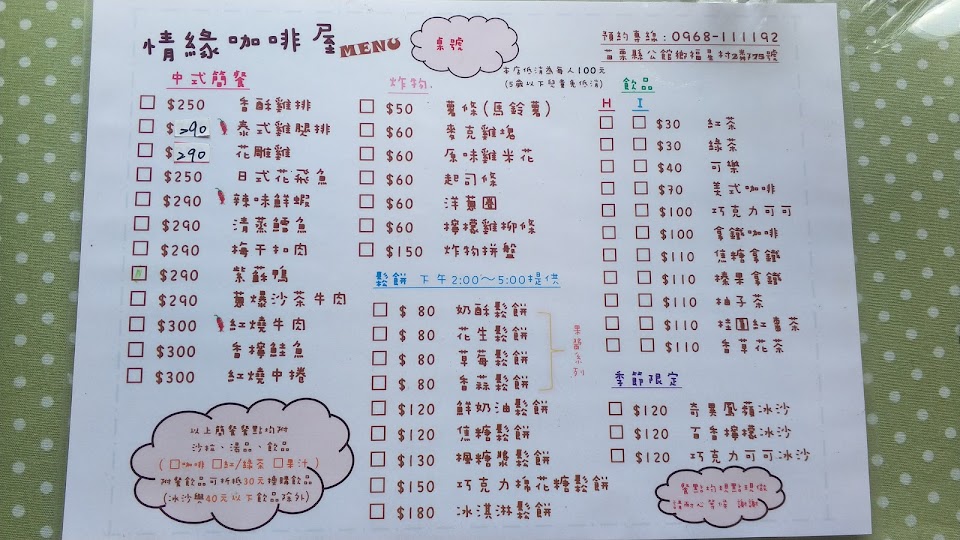 情緣咖啡屋 MENU
桌號
預約專線:0968-111192
苗栗縣公館鄉福星村2鄰175號
本店低消為每人100元
(5歲以下兒童免低消)
中式簡餐
$250 香酥雞排
$290 泰式雞腿排
$290 花雕雞
$250 日式花飛魚
$290 辣味鮮蝦
$290 清蒸鱈魚
$290 梅干扣肉
$290 紫蘇鴨
$290 蔥爆沙茶牛肉
$300 紅燒牛肉
$300 香檸鮭魚
$300 紅燒中捲
以上簡餐餐點均附
沙拉、湯品、飲品
(咖啡 紅/綠茶 果汁)
附餐飲品可折抵30元換購飲品
(冰沙與40元以下飲品除外)
炸物
$50 薯條(馬鈴薯)
$60 麥克雞塊
$60 原味雞米花
$60 起司條
$60 洋蔥圈
$60 檸檬雞柳條
$150 炸物拼盤
鬆餅 下午2:00～5:00提供
$ 80 奶酥鬆餅
$ 80 花生鬆餅
$ 80 草莓鬆餅
$ 80 香蒜鬆餅
果醬系列
$120 鮮奶油鬆餅
$120 焦糖鬆餅
$130 楓糖漿鬆餅
$150 巧克力棉花糖鬆餅
$180 冰淇淋鬆餅
飲品
H I
$30 紅茶
$30 綠茶
$40 可樂
$70 美式咖啡
$100 巧克力可可
$100 拿鐵咖啡
$110 焦糖拿鐵
$110 榛果拿鐵
$110 柚子茶
$110 桂圓紅棗茶
$110 香草花茶
季節限定
$120 奇異鳳蘋冰沙
$120 百香檸檬冰沙
$120 巧克力可可冰沙
餐點均現點現做
請耐心等候 謝謝